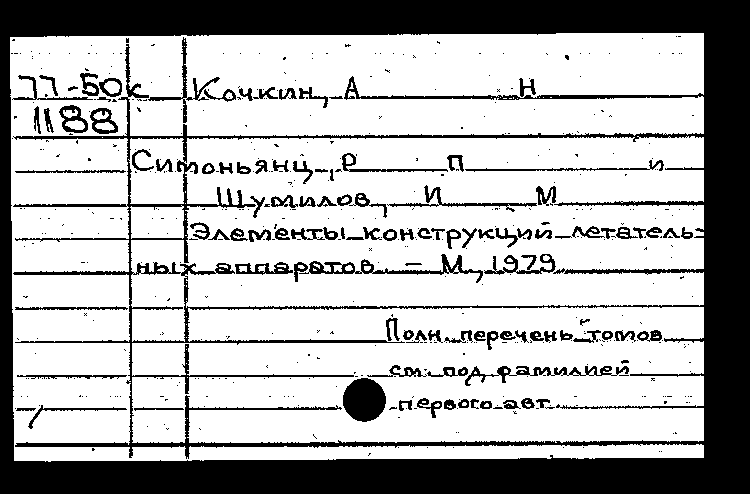 77-50к Кочкин, А Н
1188
Симоньянц, Р П и
Шумилов, И М
Элементы конструкций летатель-
ных аппаратов. – М., 1979
Полн. перечень томов
см. под фамилией
первого авт.